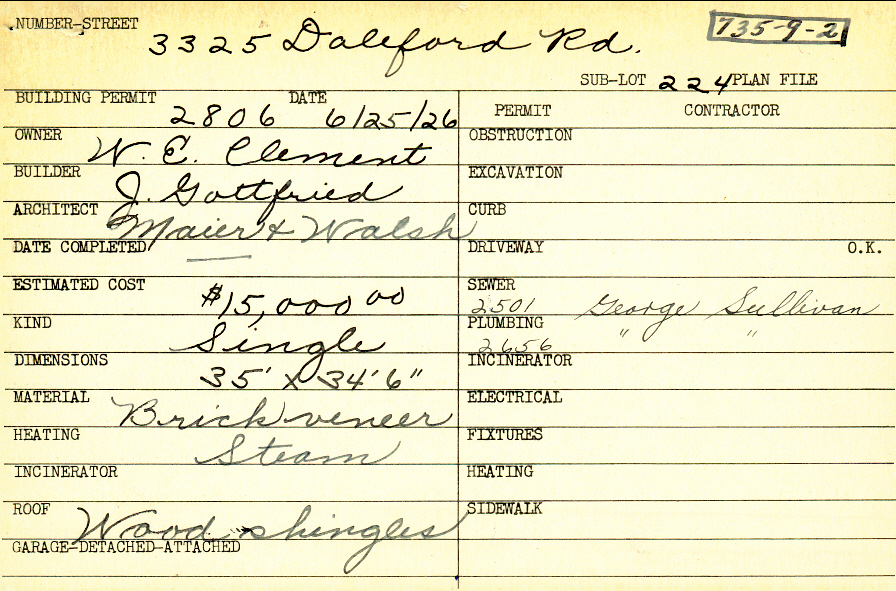 NUMBER-STREET 3325 Daleford Rd. 735-9-2
SUB-LOT 224 PLAN FILE
BUILDING PERMIT 2806 DATE 6/25/26
OWNER W. E. Clement
BUILDER J. Gottfried
ARCHITECT Maier & Walsh
DATE COMPLETED —
ESTIMATED COST $15,000 00
KIND Single
DIMENSIONS 35' x 34'6"
MATERIAL Brick veneer
HEATING Steam
INCINERATOR
ROOF Wood shingles
GARAGE-DETACHED-ATTACHED
PERMIT CONTRACTOR
OBSTRUCTION
EXCAVATION
CURB
DRIVEWAY O.K.
SEWER 2501 George Sullivan
PLUMBING 2656 " "
INCINERATOR
ELECTRICAL
FIXTURES
HEATING
SIDEWALK